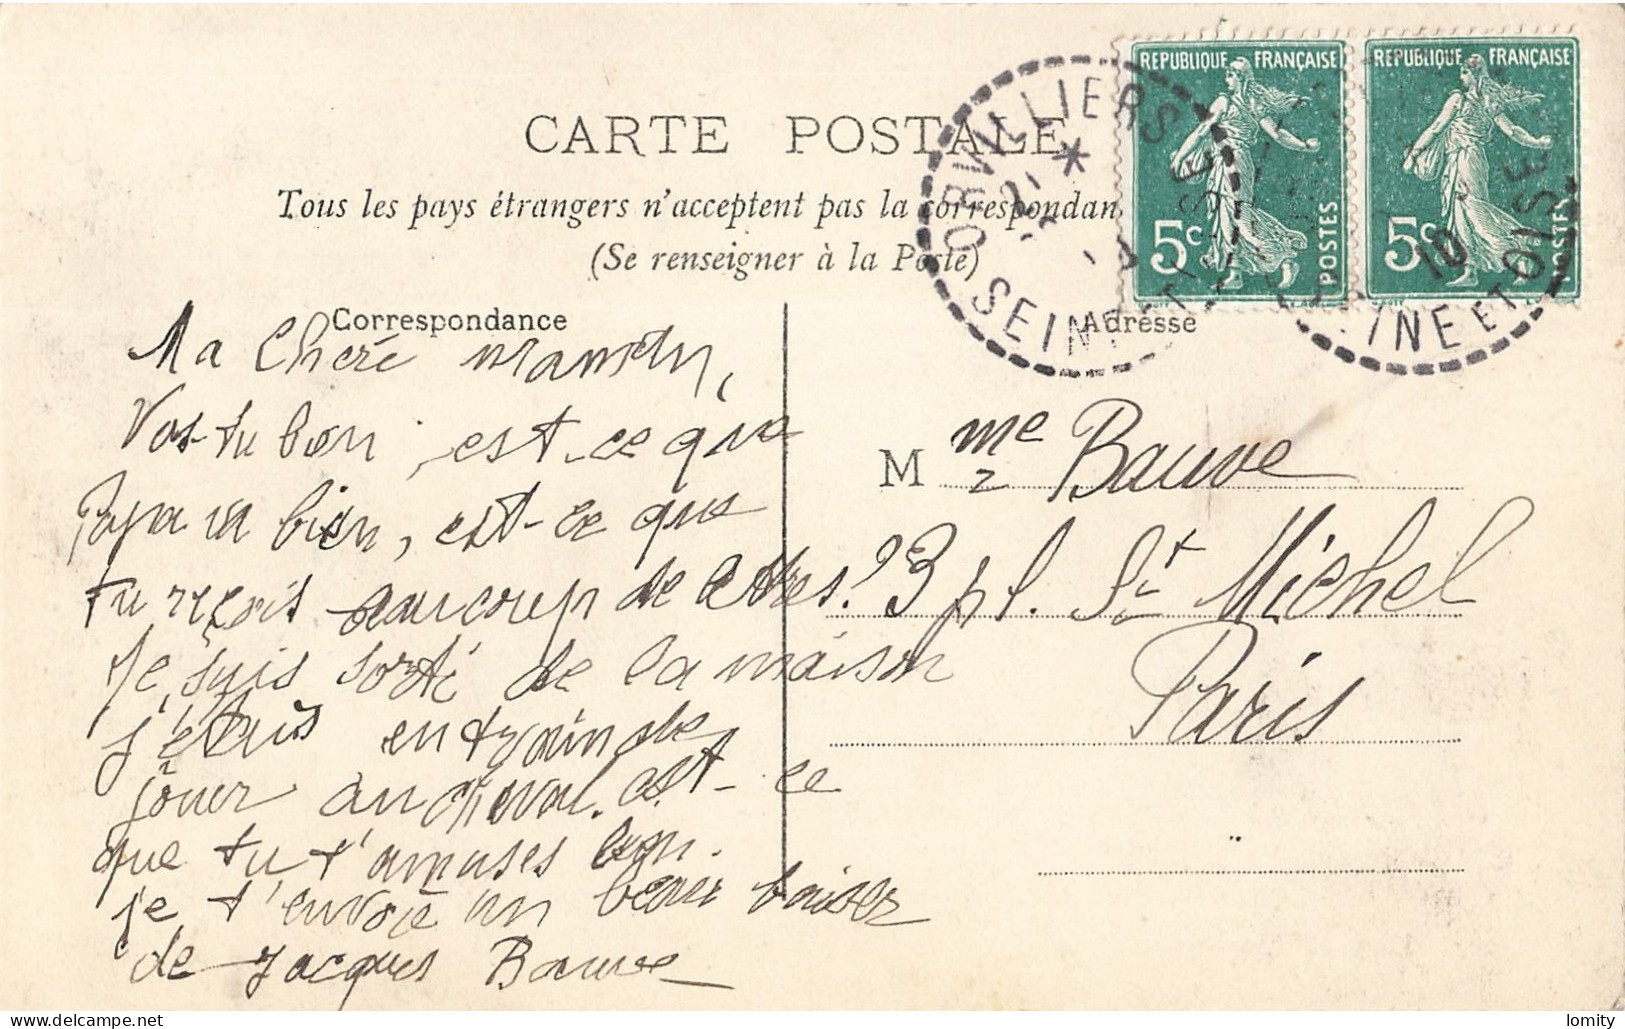 REPUBLIQUE FRANÇAISE
5c POSTES
REPUBLIQUE FRANÇAISE
5c POSTES
ORVILLIERS
SEINE ET
10
INE ET OISE
CARTE POSTALE
Tous les pays étrangers n'acceptent pas la correspondan
(Se renseigner à la Poste)
Correspondance
Ma Cheré maman,
Vas-tu bon, est-ce que
Papa va bien, est-ce que
tu reçois baucoup de lettres?
Je suis sorti de la maison
j'étais en train de
jouer au cheval. est-ce
que tu t'amuses bien.
je t'envoie un beau baiser
de Jacques Bauve
Adresse
M me Bauve
3 pl. St Michel
Paris
delcampe.net
lomity